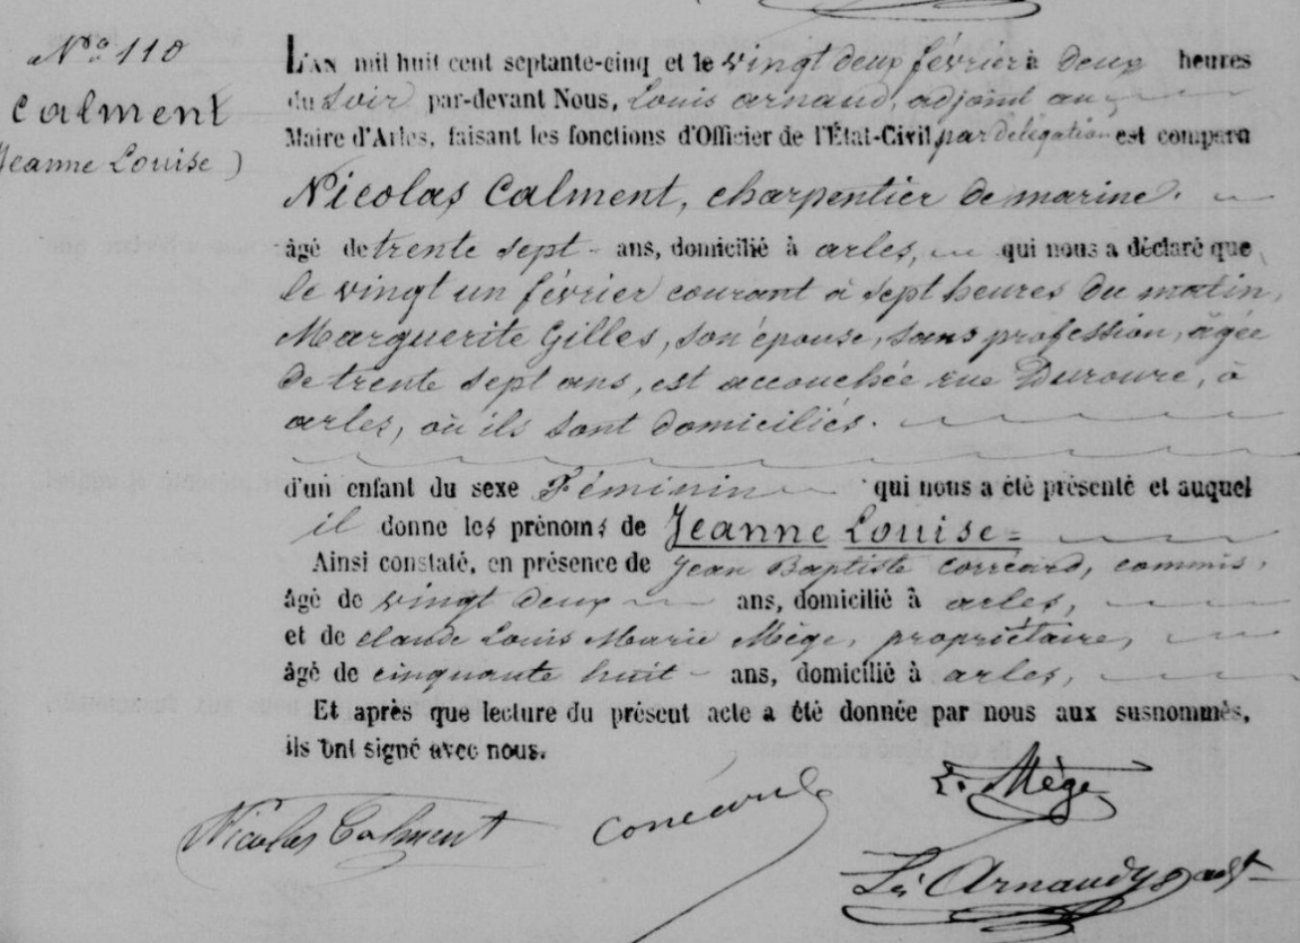 N° 110
Calment
Jeanne Louise)
L'AN mil huit cent septante-cinq et le vingt deux février à deux heures
du soir par-devant Nous, Louis arnaud, adjoint au
Maire d'Arles, faisant les fonctions d'Officier de l'État-Civil, par délégation est comparu
Nicolas Calment, charpentier de marine.
âgé de trente sept ans, domicilié à arles, qui nous a déclaré que
le vingt un février courant à sept heures du matin,
Marguerite Gilles, son épouse, sans profession, âgée
de trente sept ans, est accouchée rue Duroure, à
arles, où ils sont domiciliés.
d'un enfant du sexe Féminin qui nous a été présenté et auquel
il donne les prénoms de Jeanne Louise=
Ainsi constaté, en présence de Jean Baptiste Corréard, commis,
âgé de vingt deux ans, domicilié à arles,
et de claude Louis Marie Mège, propriétaire,
âgé de cinquante huit ans, domicilié à arles,
Et après que lecture du présent acte a été donnée par nous aux susnommés,
ils ont signé avec nous.
L. Mège
Nicolas Calment Correard
Ls Arnaud adjt